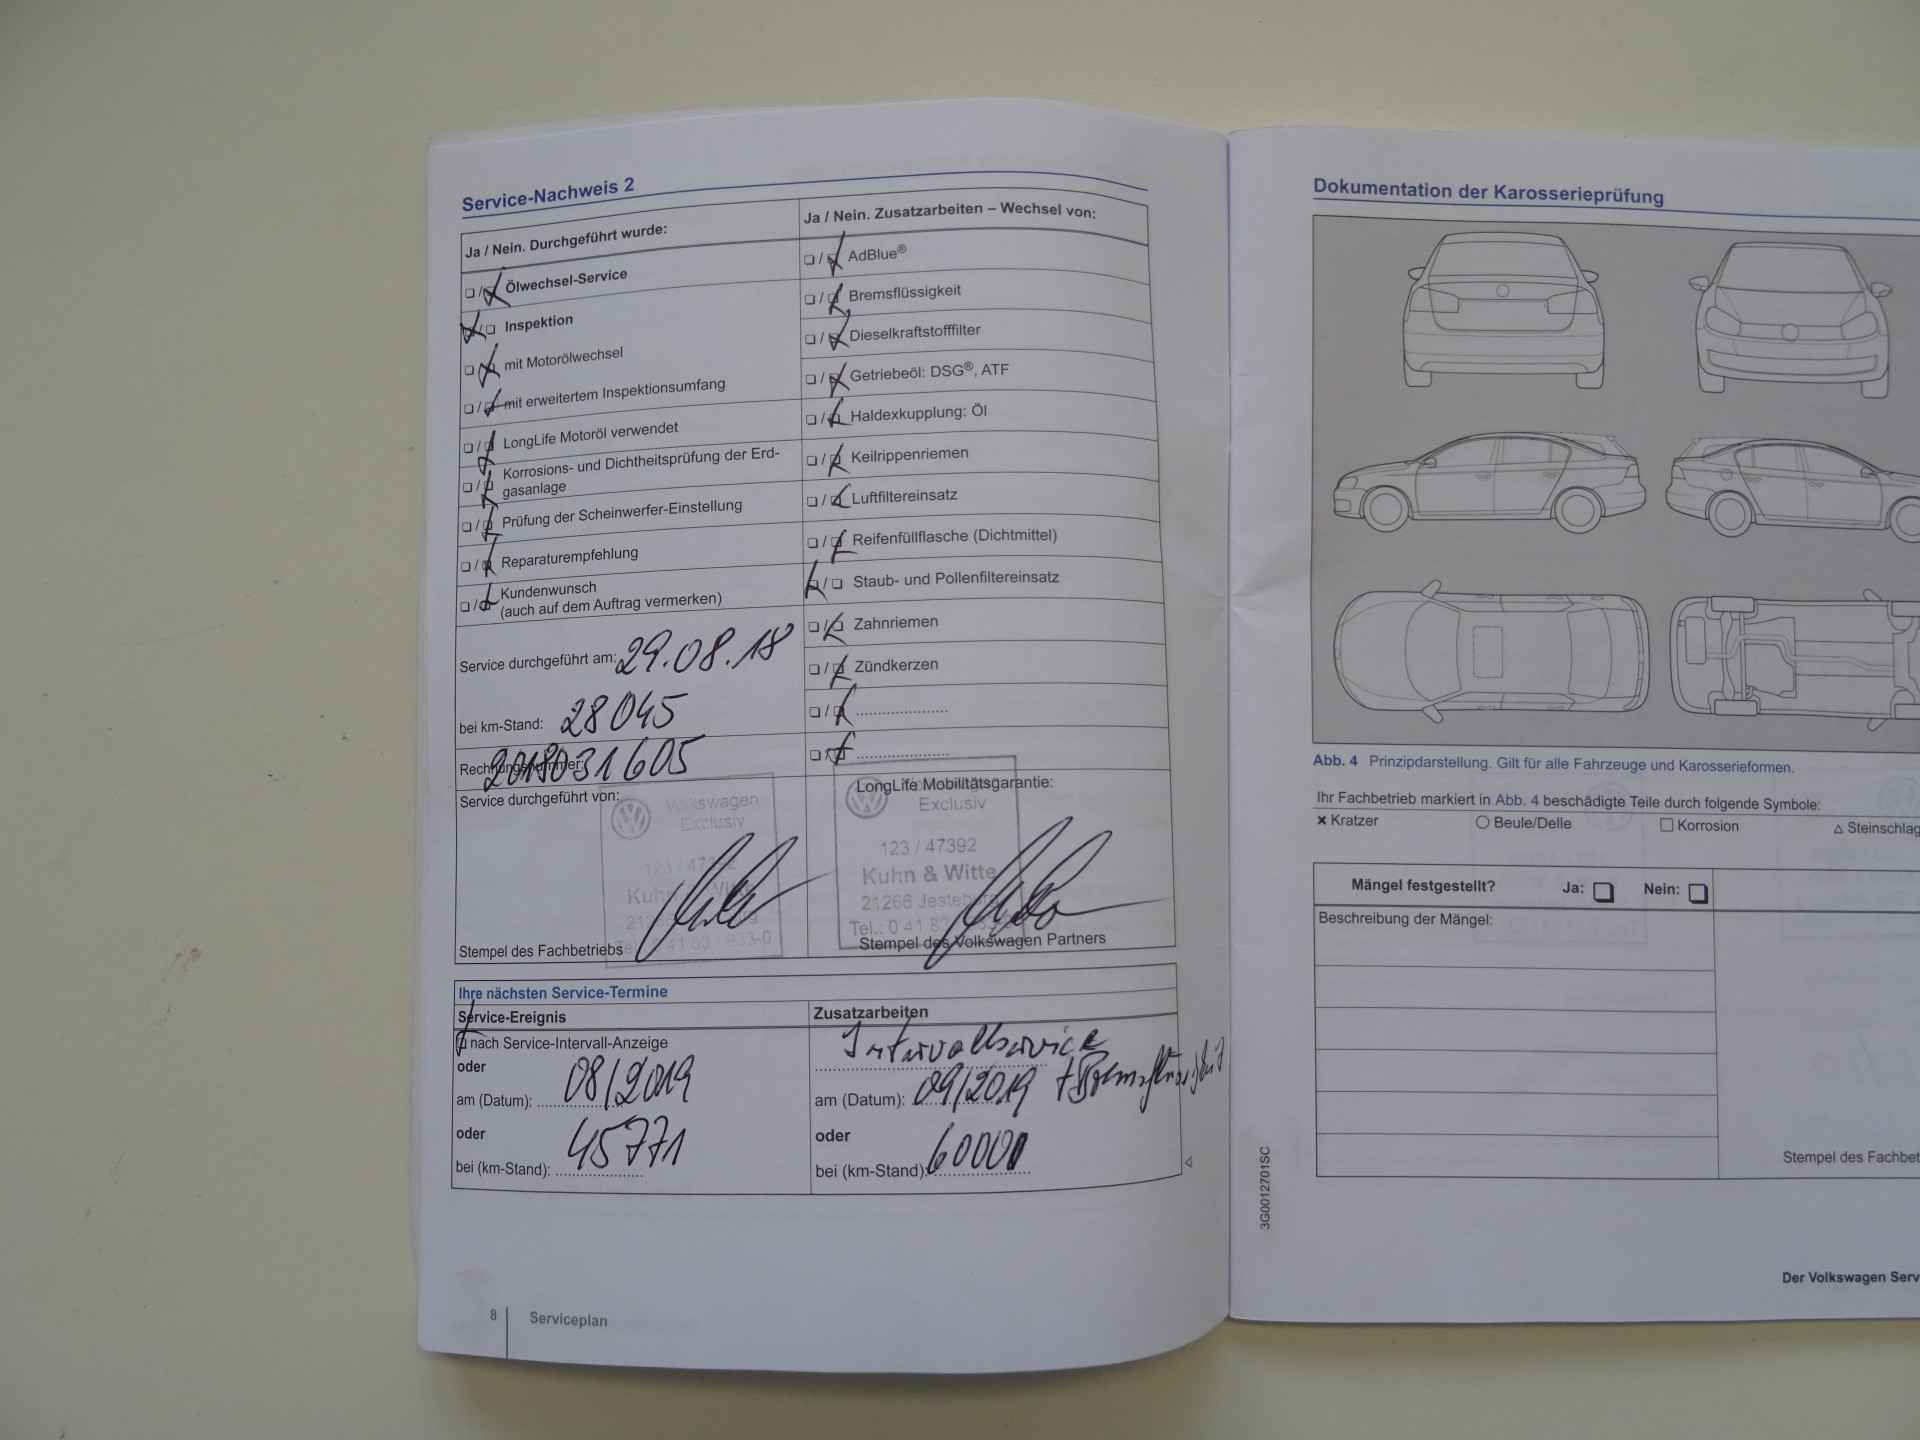 Service-Nachweis 2
Ja / Nein. Durchgeführt wurde:
Ölwechsel-Service
Inspektion
mit Motorölwechsel
mit erweitertem Inspektionsumfang
LongLife Motoröl verwendet
Korrosions- und Dichtheitsprüfung der Erd-
gasanlage
Prüfung der Scheinwerfer-Einstellung
Reparaturempfehlung
Kundenwunsch
(auch auf dem Auftrag vermerken)
Service durchgeführt am: 29.08.18
bei km-Stand: 28045
Rechnungsnummer: 2018031605
Service durchgeführt von:
Volkswagen
Exclusiv
123 / 47392
Kuhn & Witte
Stempel des Fachbetriebs
Ja / Nein. Zusatzarbeiten – Wechsel von:
AdBlue®
Bremsflüssigkeit
Dieselkraftstofffilter
Getriebeöl: DSG®, ATF
Haldexkupplung: Öl
Keilrippenriemen
Luftfiltereinsatz
Reifenfüllflasche (Dichtmittel)
Staub- und Pollenfiltereinsatz
Zahnriemen
Zündkerzen
LongLife Mobilitätsgarantie:
Exclusiv
123 / 47392
Kuhn & Witte
21266 Jesteburg
Tel.: 0 41 83
Stempel des Volkswagen Partners
Ihre nächsten Service-Termine
Service-Ereignis
nach Service-Intervall-Anzeige
oder
am (Datum): 08/2019
oder
bei (km-Stand): 45771
Zusatzarbeiten
Intervallservice
+ Bremsflüssigkeit
am (Datum): 09/2019
oder
bei (km-Stand): 60000
8 Serviceplan
Dokumentation der Karosserieprüfung
Abb. 4 Prinzipdarstellung. Gilt für alle Fahrzeuge und Karosserieformen.
Ihr Fachbetrieb markiert in Abb. 4 beschädigte Teile durch folgende Symbole:
× Kratzer ○ Beule/Delle □ Korrosion △ Steinschlag
Mängel festgestellt? Ja: Nein:
Beschreibung der Mängel:
Stempel des Fachbet
3G0012701SC
Der Volkswagen Serv